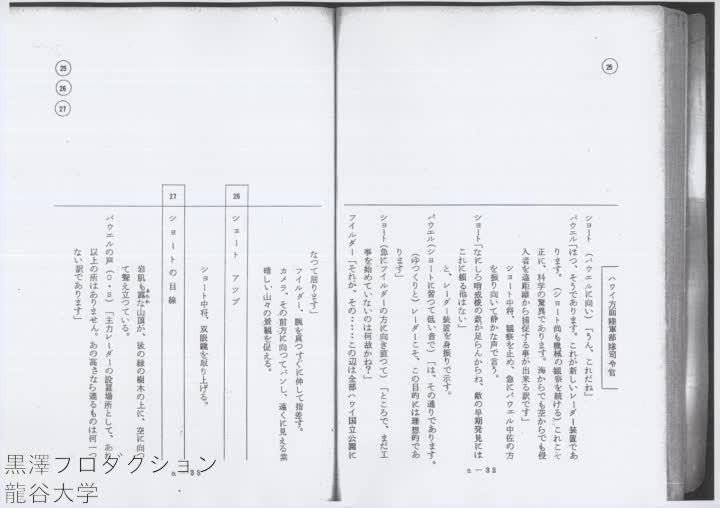 ㉕
ハワイ方面陸軍部隊司令官
ショート（パウエルに向い）「うん、これだね」
パウエル「はつ、そうであります。これが新しいレーダー装置であ
ります。（ショート尚も機械の観察を続ける）これこそ
正に、科学の驚異であります。海からでも空からでも侵
入者を遠距離から捕捉する事が出来る訳です」
ショート中将、観察を止め、急にパウエル中佐の方
を振り向いて静かな声で言う。
ショート「なにしろ哨戒機の数が足らんからね、敵の早期発見には
これに頼る他はない」
と、レーダー装置を身振りで示す。
パウエル（ショートに習つて低い音で）「は、その通りであります。
（ゆつくりと）レーダーこそ、この目的には理想的であ
ります」
ショート（急にフイルダーの方に向き直つて）「ところで、まだ工
事を始めていないのは何故かね？」
フイルダー「それが、その‥‥‥この辺は全部ハワイ国立公園に
n－32
㉕
㉖
㉗
なつて居ります」
フイルダー、腕を真つすぐに伸して指差す。
カメラ、その前方に向つてパンし、遠くに見える素
晴しい山々の景観を捉える。
26 ショート アップ
ショート中将、双眼鏡を取り上げる。
27 ショートの目線
岩肌も露な山頂が、後の緑の樹木の上に、空に向つ
て聳え立つている。
パウエルの声（O・S）「主力レーダーの設置場所として、あれ
以上の所はありません。あの高さなら遮るものは何一つ
ない訳であります」
n－33
黒澤プロダクション
龍谷大学